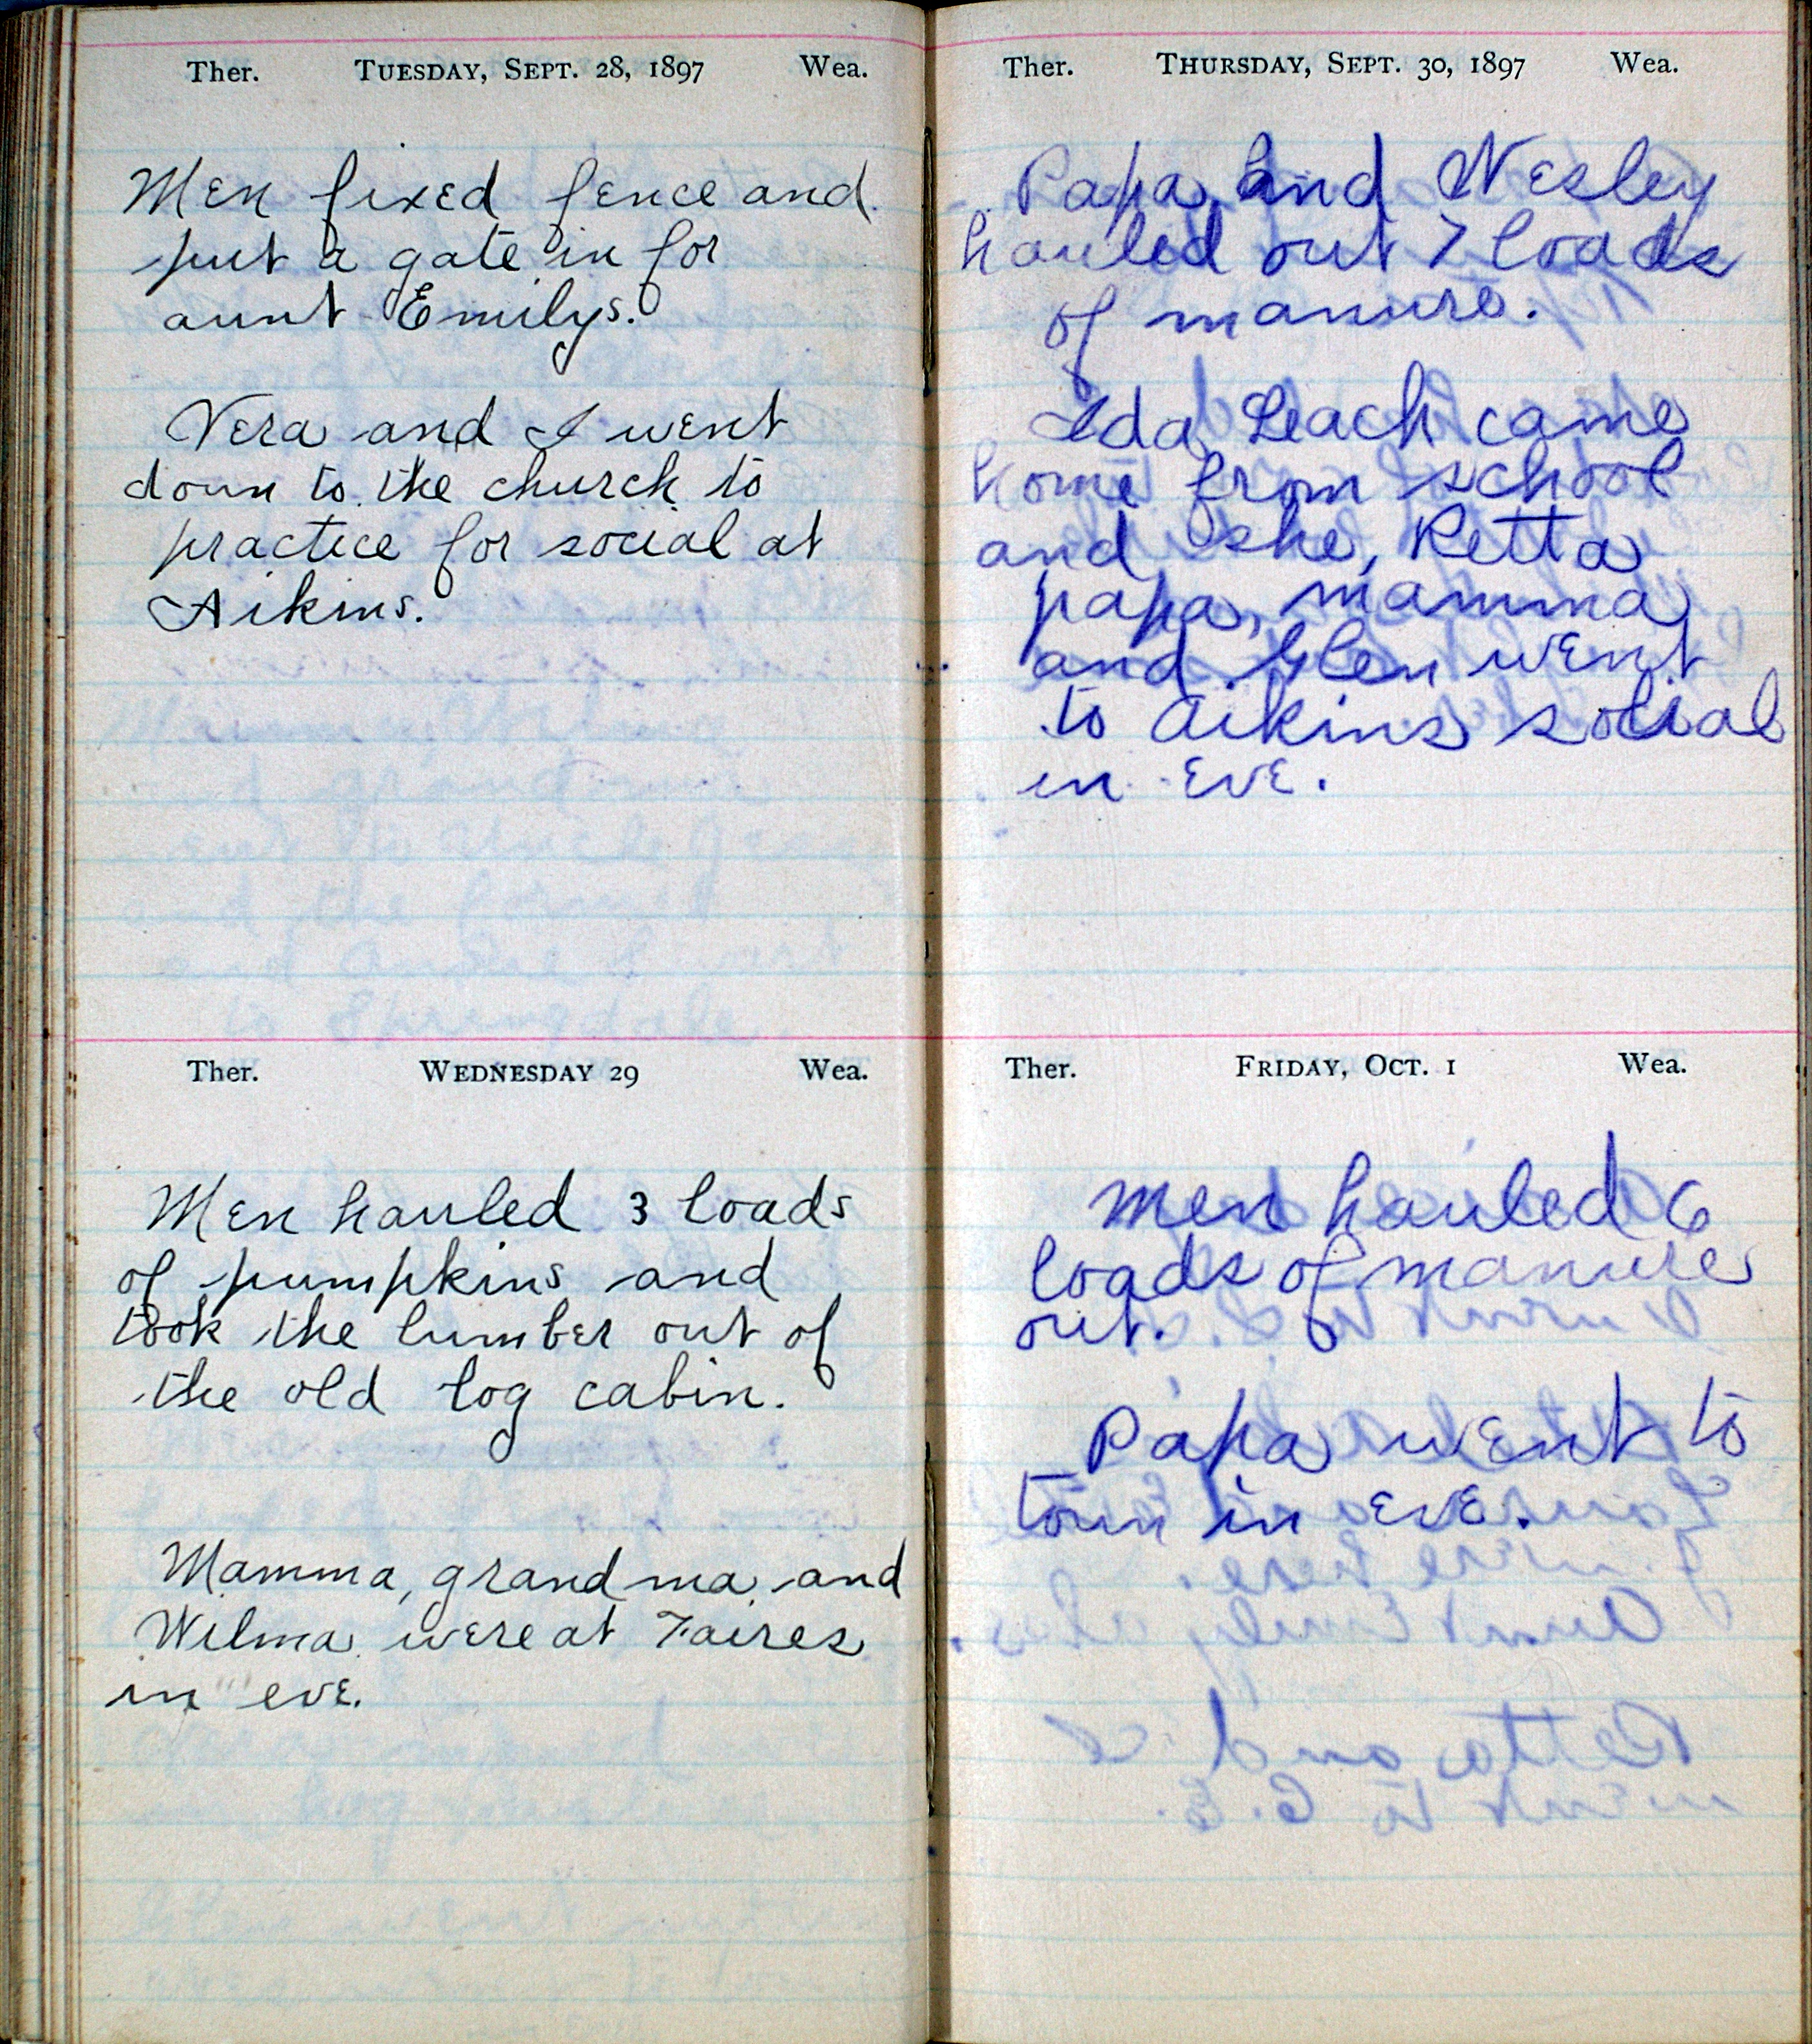 Ther. TUESDAY, SEPT. 28, 1897 Wea.
Men fixed fence and
put a gate in for
aunt Emilys.
Vera and I went
down to the church to
practice for social at
Aikins.
Ther. WEDNESDAY 29 Wea.
Men hauled 3 loads
of pumpkins and
took the lumber out of
the old log cabin.
Mamma, grandma and
Wilma were at Faires
in eve.
Ther. THURSDAY, SEPT. 30, 1897 Wea.
Papa and Wesley
hauled out 7 loads
of manure.
Ida Leach came
home from school
and she, Retta
papa, mamma
and Glen went
to Aikins social
in eve.
Ther. FRIDAY, OCT. 1 Wea.
Men hauled 6
loads of manure
out.
Papa went to
town in eve.